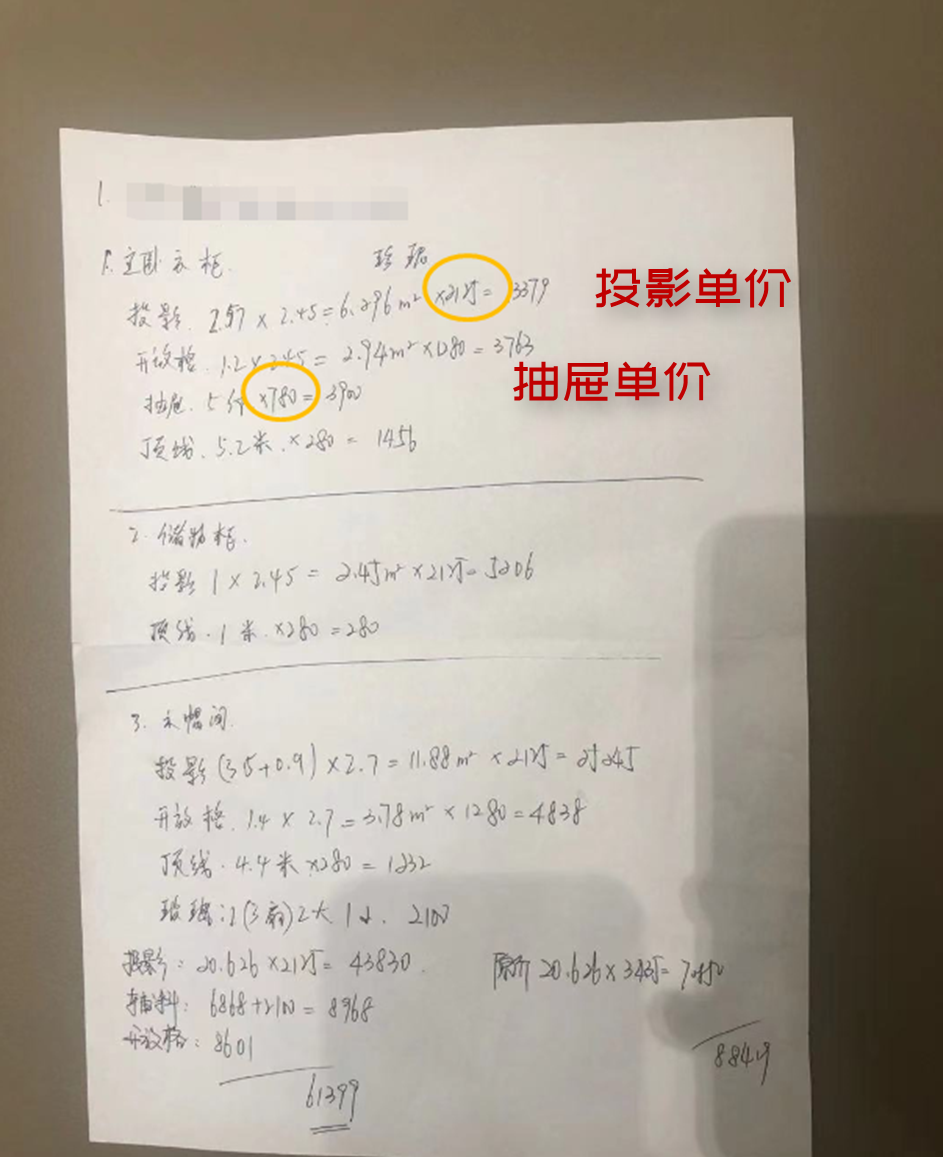 1.
1. 主卧衣柜.
投影. 2.57 × 2.45 = 6.296m² ×2125 = 13379
投影单价
开放格. 1.2 × 2.45 = 2.94m² × 1280 = 3763
抽屉. 5个 ×780 = 3900
抽屉单价
顶线. 5.2米. × 280 = 1456
2. 储物柜.
投影 1 × 2.45 = 2.45m² × 2125 = 5206
顶线. 1米. ×280 = 280
3. 衣帽间.
投影 (3.5+0.9) × 2.7 = 11.88m² × 2125 = 25245
开放格. 1.4 × 2.7 = 3.78m² × 1280 = 4838
顶线. 4.4米 ×280 = 1232
玻璃: 2(3扇) 2大. 1小. 2100
投影: 20.626 × 2125 = 43830.
原价 20.626 × 3435 = 70850
辅料: 6868+2100 = 8968
开放格: 8601
61399
88419